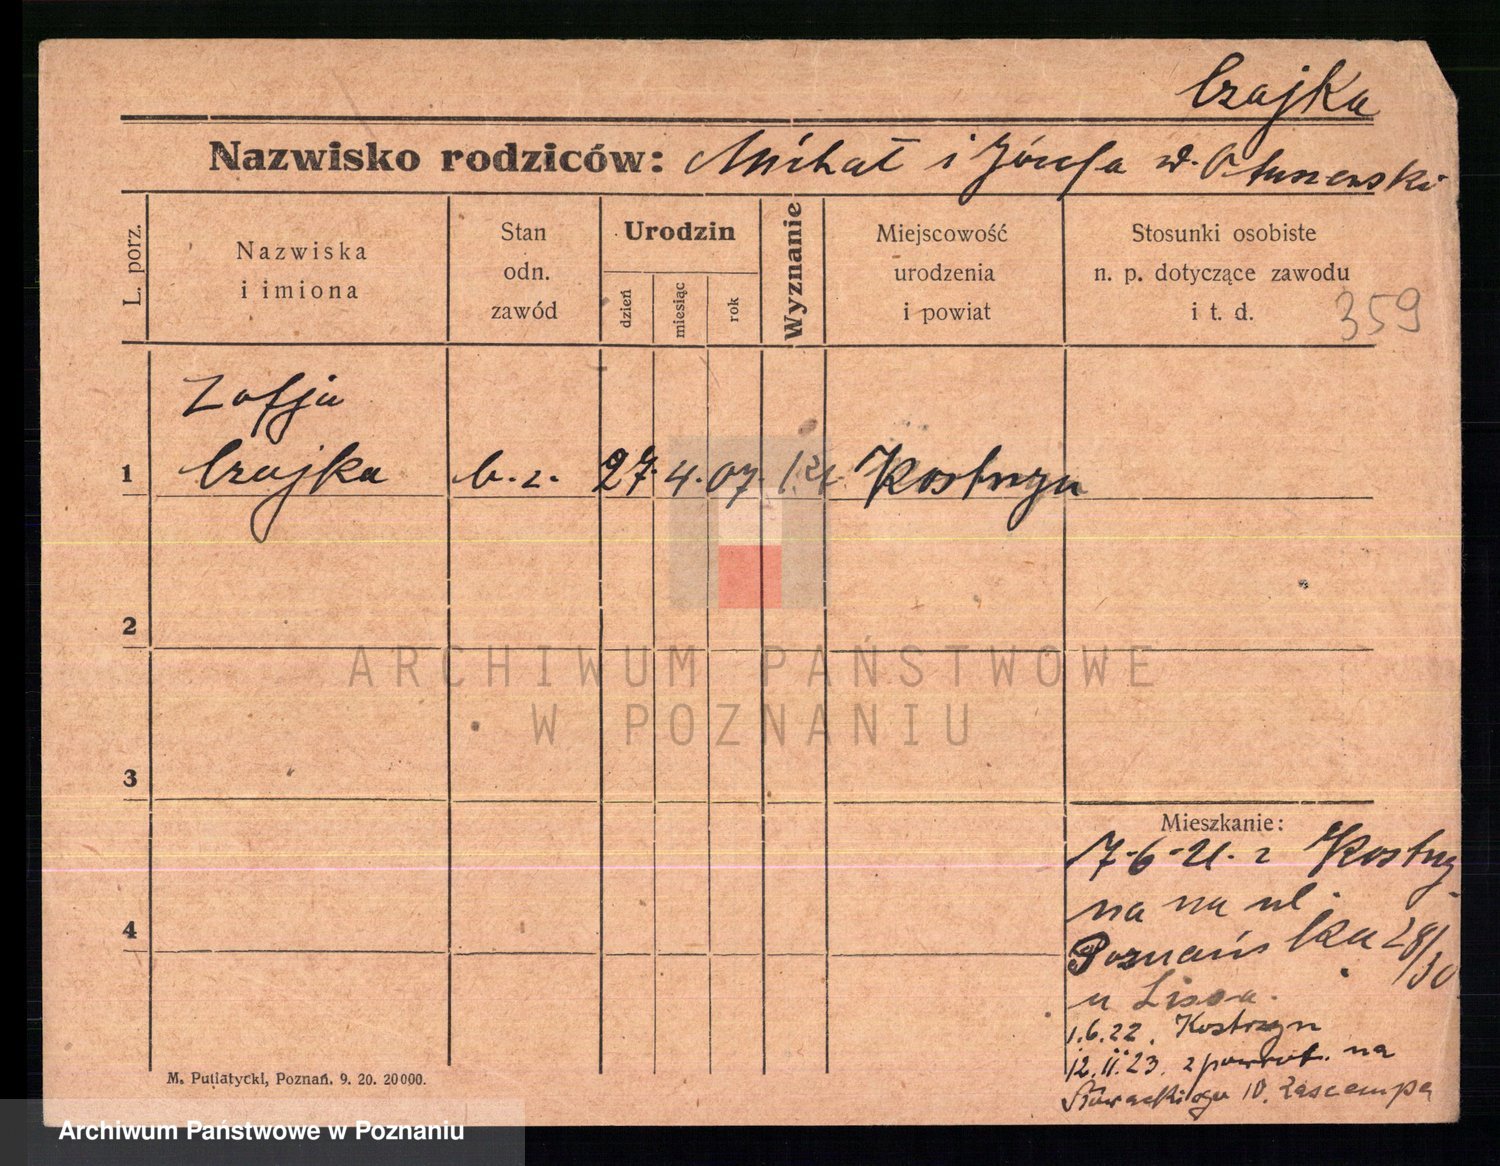 Czajka
Nazwisko rodziców: Michał i Józefa z d. Otuszewski
L. porz.
Nazwiska
i imiona
Stan
odn.
zawód
Urodzin
dzień
miesiąc
rok
Wyznanie
Miejscowość
urodzenia
i powiat
Stosunki osobiste
n. p. dotyczące zawodu
i t. d.
359
Zofja
1 Czajka b. z. 27. 4. 07. Kostrzyn
2
ARCHIWUM PAŃSTWOWE
W POZNANIU
3
Mieszkanie:
17-6-21. z Kostrzy-
na na ul.
4
Poznańska 28/30
u Lisa.
1.6.22. Kostrzyn
12.II.23. z powrot. na
Słowackiego 10.
M. Putiatycki, Poznań. 9. 20. 20000.
Archiwum Państwowe w Poznaniu